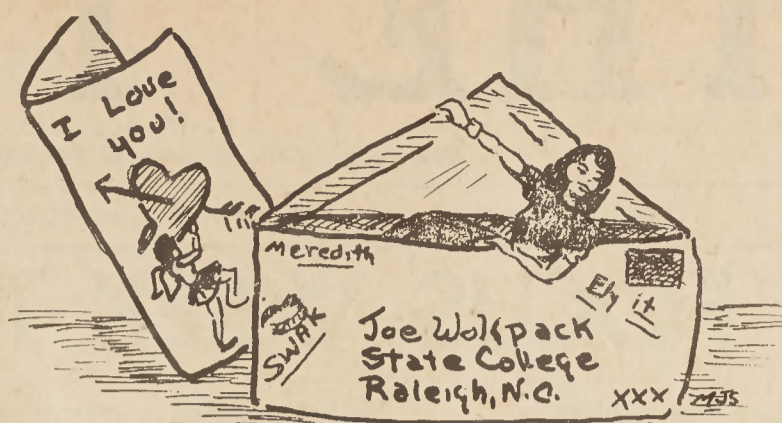 I Love
you!
Meredith
SWAK
Joe Wolfpack
State College
Raleigh, N.C.
XXX
MJS